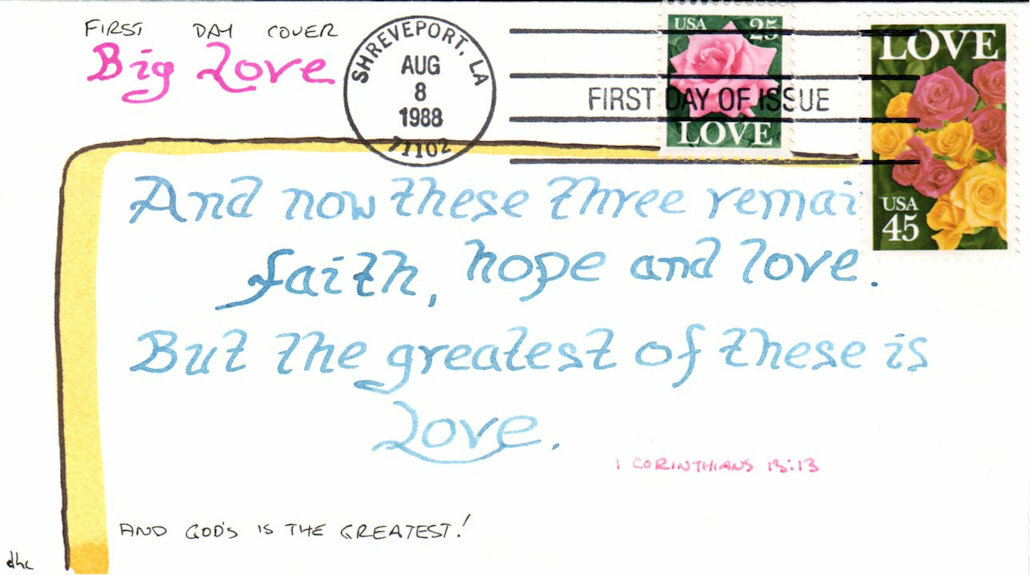 FIRST DAY COVER
Big Love
SHREVEPORT, LA
AUG
8
1988
71102
FIRST DAY OF ISSUE
USA 25
LOVE
LOVE
USA
45
And now these three remai
faith, hope and love.
But the greatest of these is
Love.
1 CORINTHIANS 13:13
AND GOD'S IS THE GREATEST!
dhc